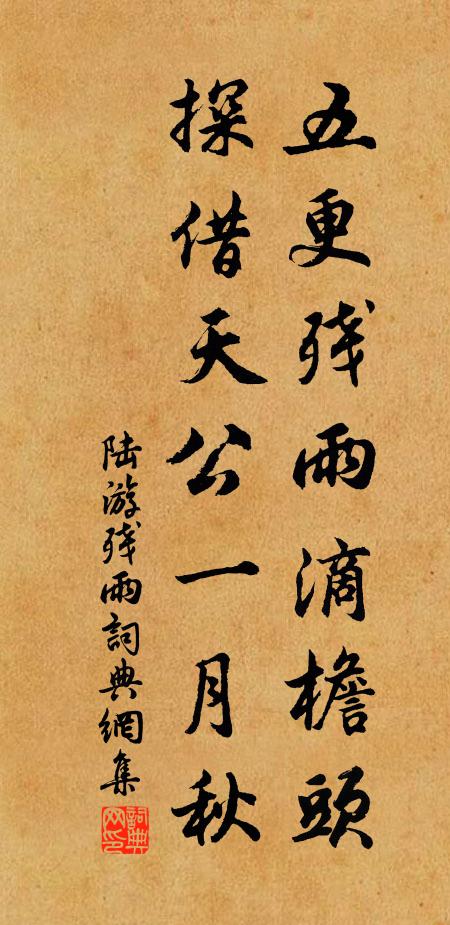 五更残雨滴檐頭
探借天公一月秋
陆游残雨詞典網集
詞典网印